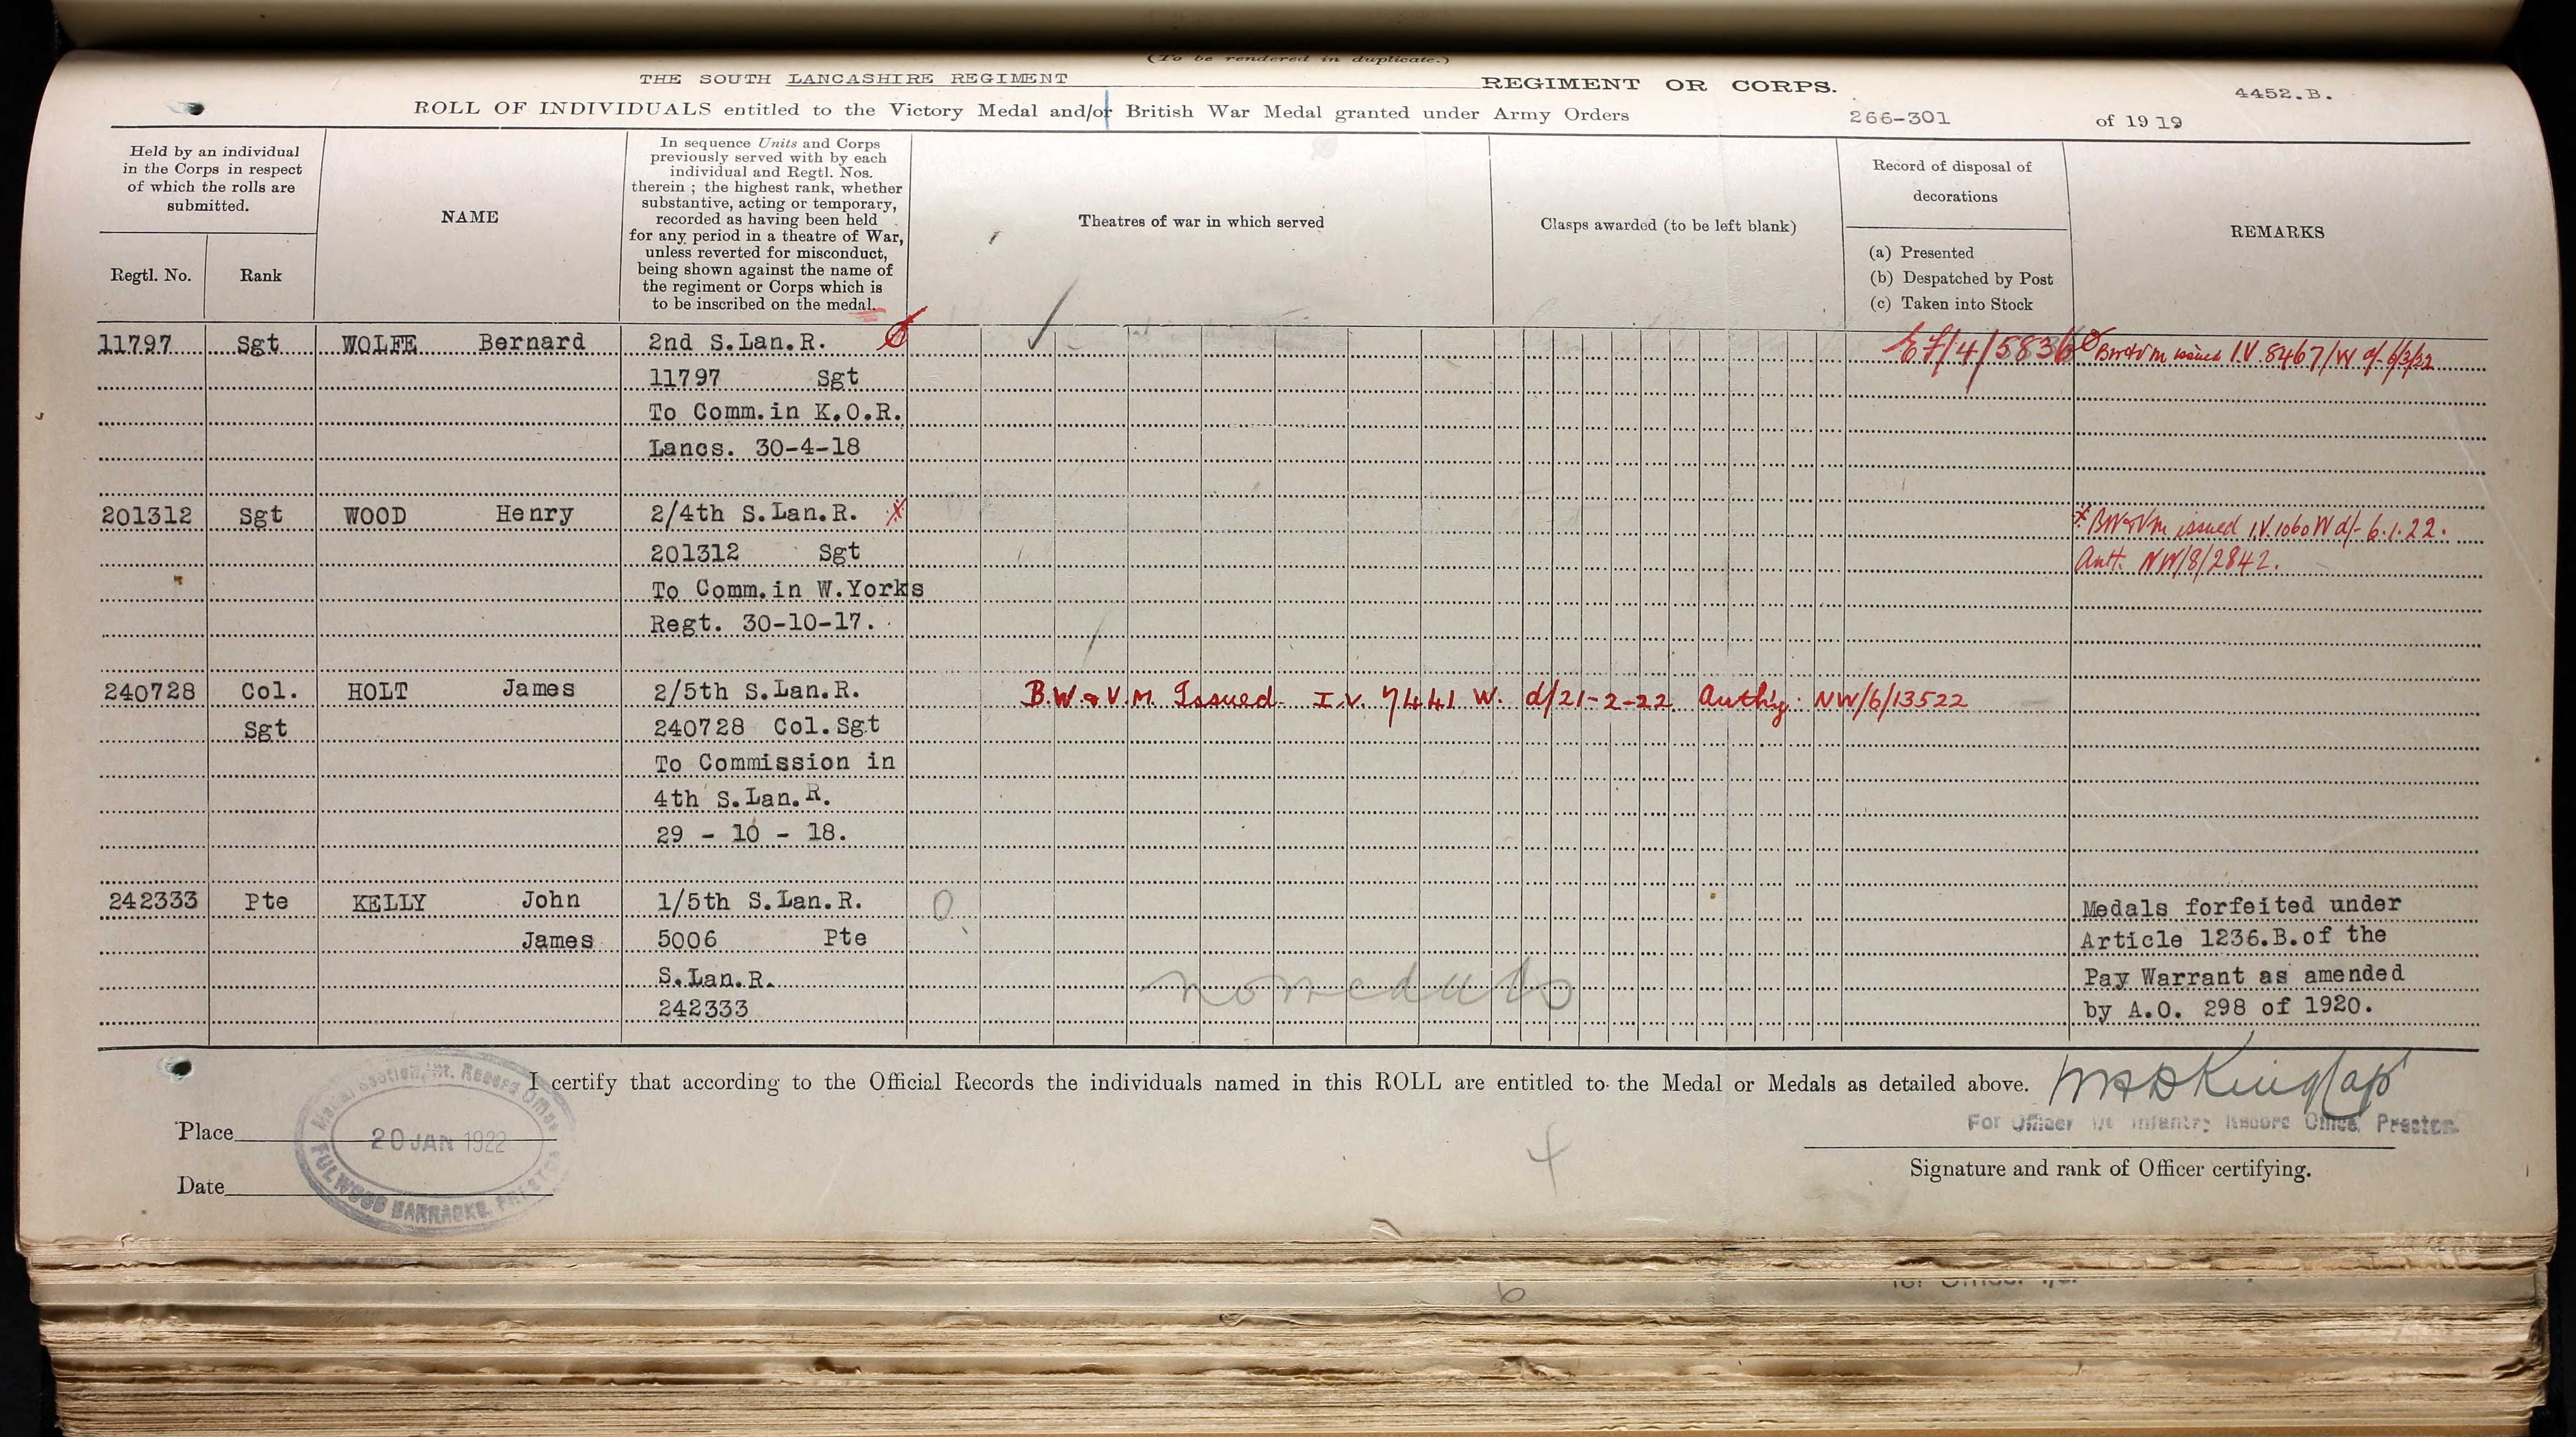 (To be rendered in duplicate.)
THE SOUTH LANCASHIRE REGIMENT REGIMENT OR CORPS. 4452.B.
ROLL OF INDIVIDUALS entitled to the Victory Medal and/or British War Medal granted under Army Orders 266-301 of 1919
Held by an individual
in the Corps in respect
of which the rolls are
submitted.
Regtl. No.
Rank
NAME
In sequence Units and Corps
previously served with by each
individual and Regtl. Nos.
therein ; the highest rank, whether
substantive, acting or temporary,
recorded as having been held
for any period in a theatre of War,
unless reverted for misconduct,
being shown against the name of
the regiment or Corps which is
to be inscribed on the medal.
Theatres of war in which served
Clasps awarded (to be left blank)
Record of disposal of
decorations
(a) Presented
(b) Despatched by Post
(c) Taken into Stock
REMARKS
11797 Sgt WOLFE Bernard 2nd S.Lan.R. /4/5836 BW&VM issued I.V. 8467/W d/- 6/3/32
11797 Sgt
To Comm.in K.O.R.
Lancs. 30-4-18
201312 Sgt WOOD Henry 2/4th S.Lan.R. X * BW&VM issued I.V. 1060 W d/- 6.1.22.
201312 Sgt Auth. NW/8/2842.
To Comm.in W.Yorks
Regt. 30-10-17.
240728 Col. HOLT James 2/5th S.Lan.R. B.W.&V.M. Issued. I.V. 7441 W. d/21-2-22 Auth'y. NW/6/13522
Sgt 240728 Col.Sgt
To Commission in
4th S.Lan.R.
29 - 10 - 18.
242333 Pte KELLY John 1/5th S.Lan.R. 0 Medals forfeited under
James 5006 Pte Article 1236.B.of the
S.Lan.R. no medals Pay Warrant as amended
242333 by A.O. 298 of 1920.
I certify that according to the Official Records the individuals named in this ROLL are entitled to the Medal or Medals as detailed above.
For Officer i/c Infantry Record Office, Preston.
Place
20 JAN 1922
FULWOOD BARRACKS, PRESTON
Date
Signature and rank of Officer certifying.
4
6